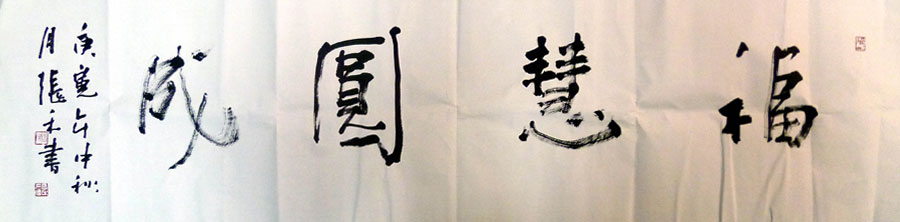 福慧圓成
庚寅年中秋
月張禾書